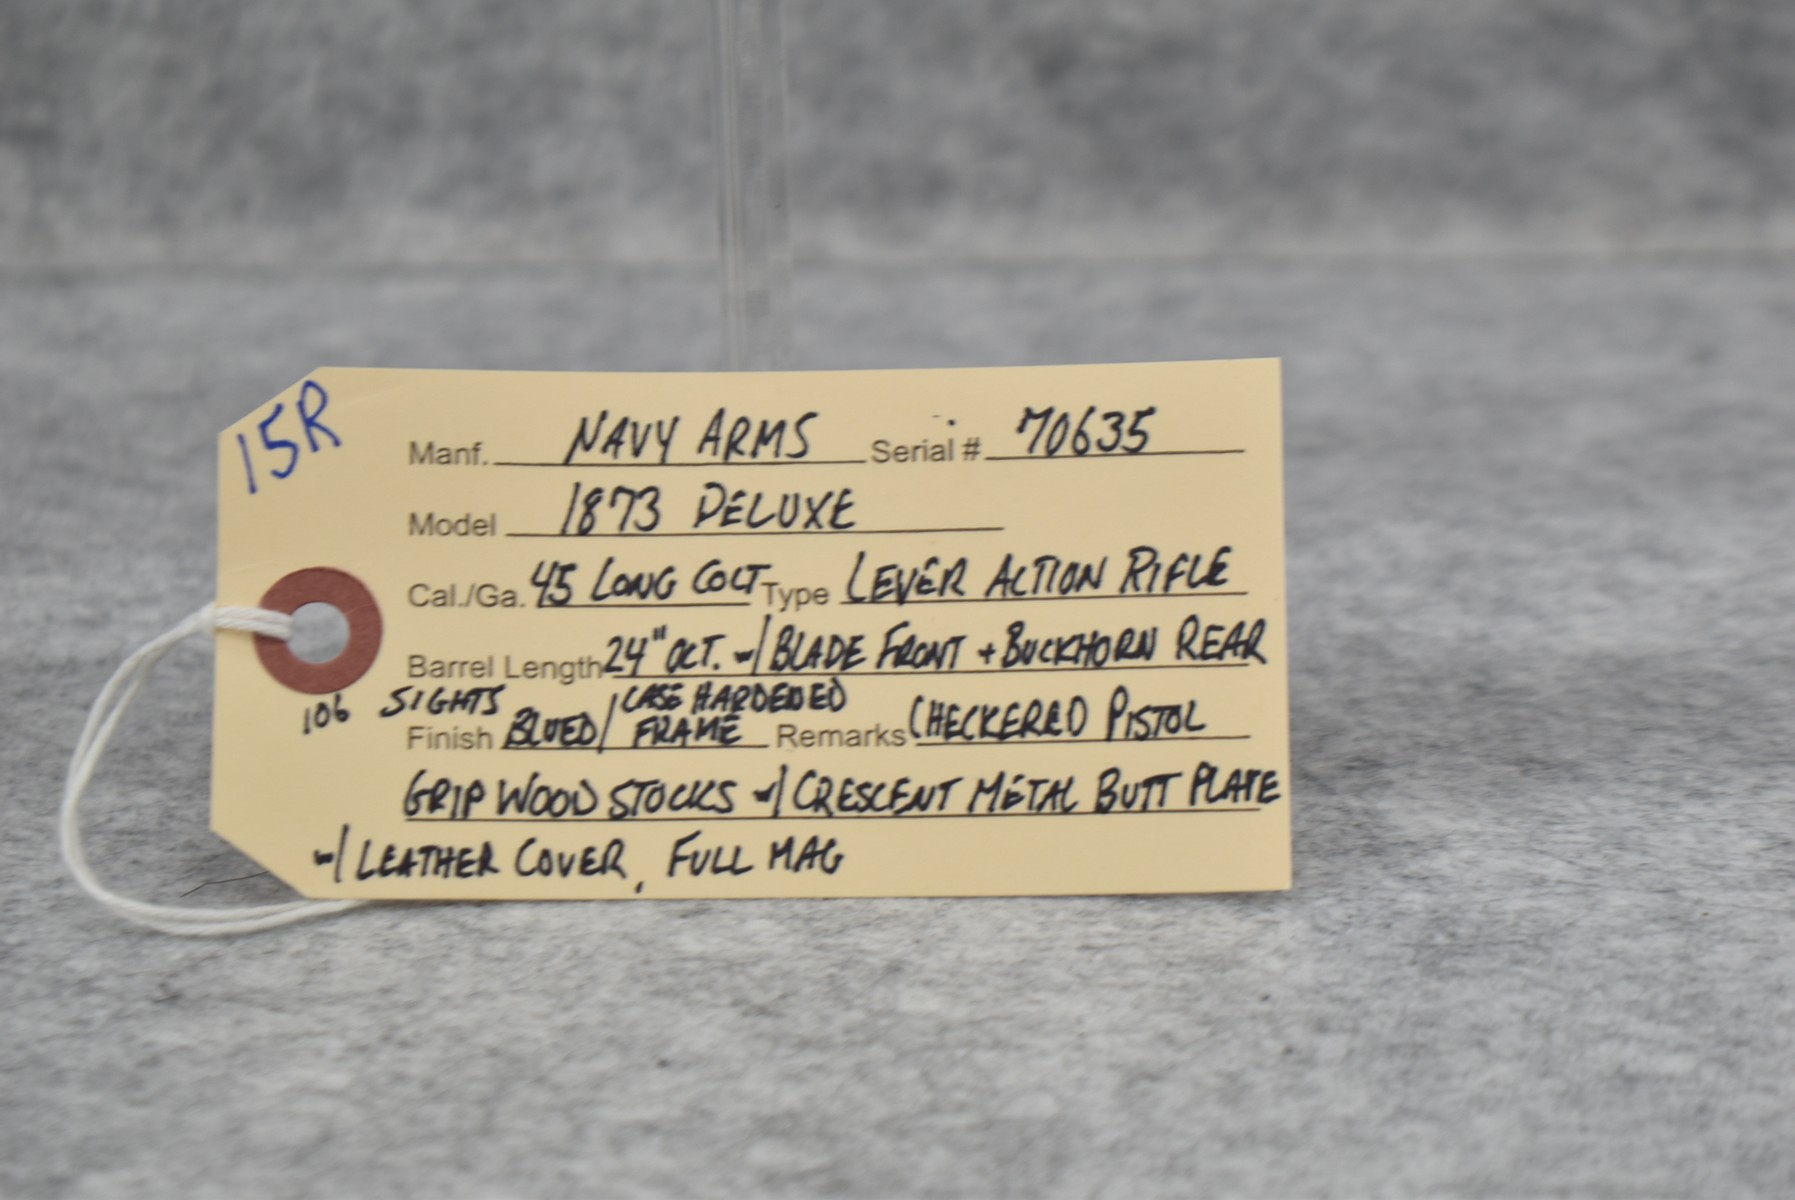 15R
Manf. NAVY ARMS Serial # 70635
Model 1873 DELUXE
Cal./Ga. 45 LONG COLT Type LEVER ACTION RIFLE
Barrel Length 24" OCT. w/ BLADE FRONT + BUCKHORN REAR
106 SIGHTS
Finish BLUED/ CASE HARDEDED FRAME Remarks CHECKERED PISTOL
GRIP WOOD STOCKS w/ CRESCENT METAL BUTT PLATE
w/ LEATHER COVER, FULL MAG